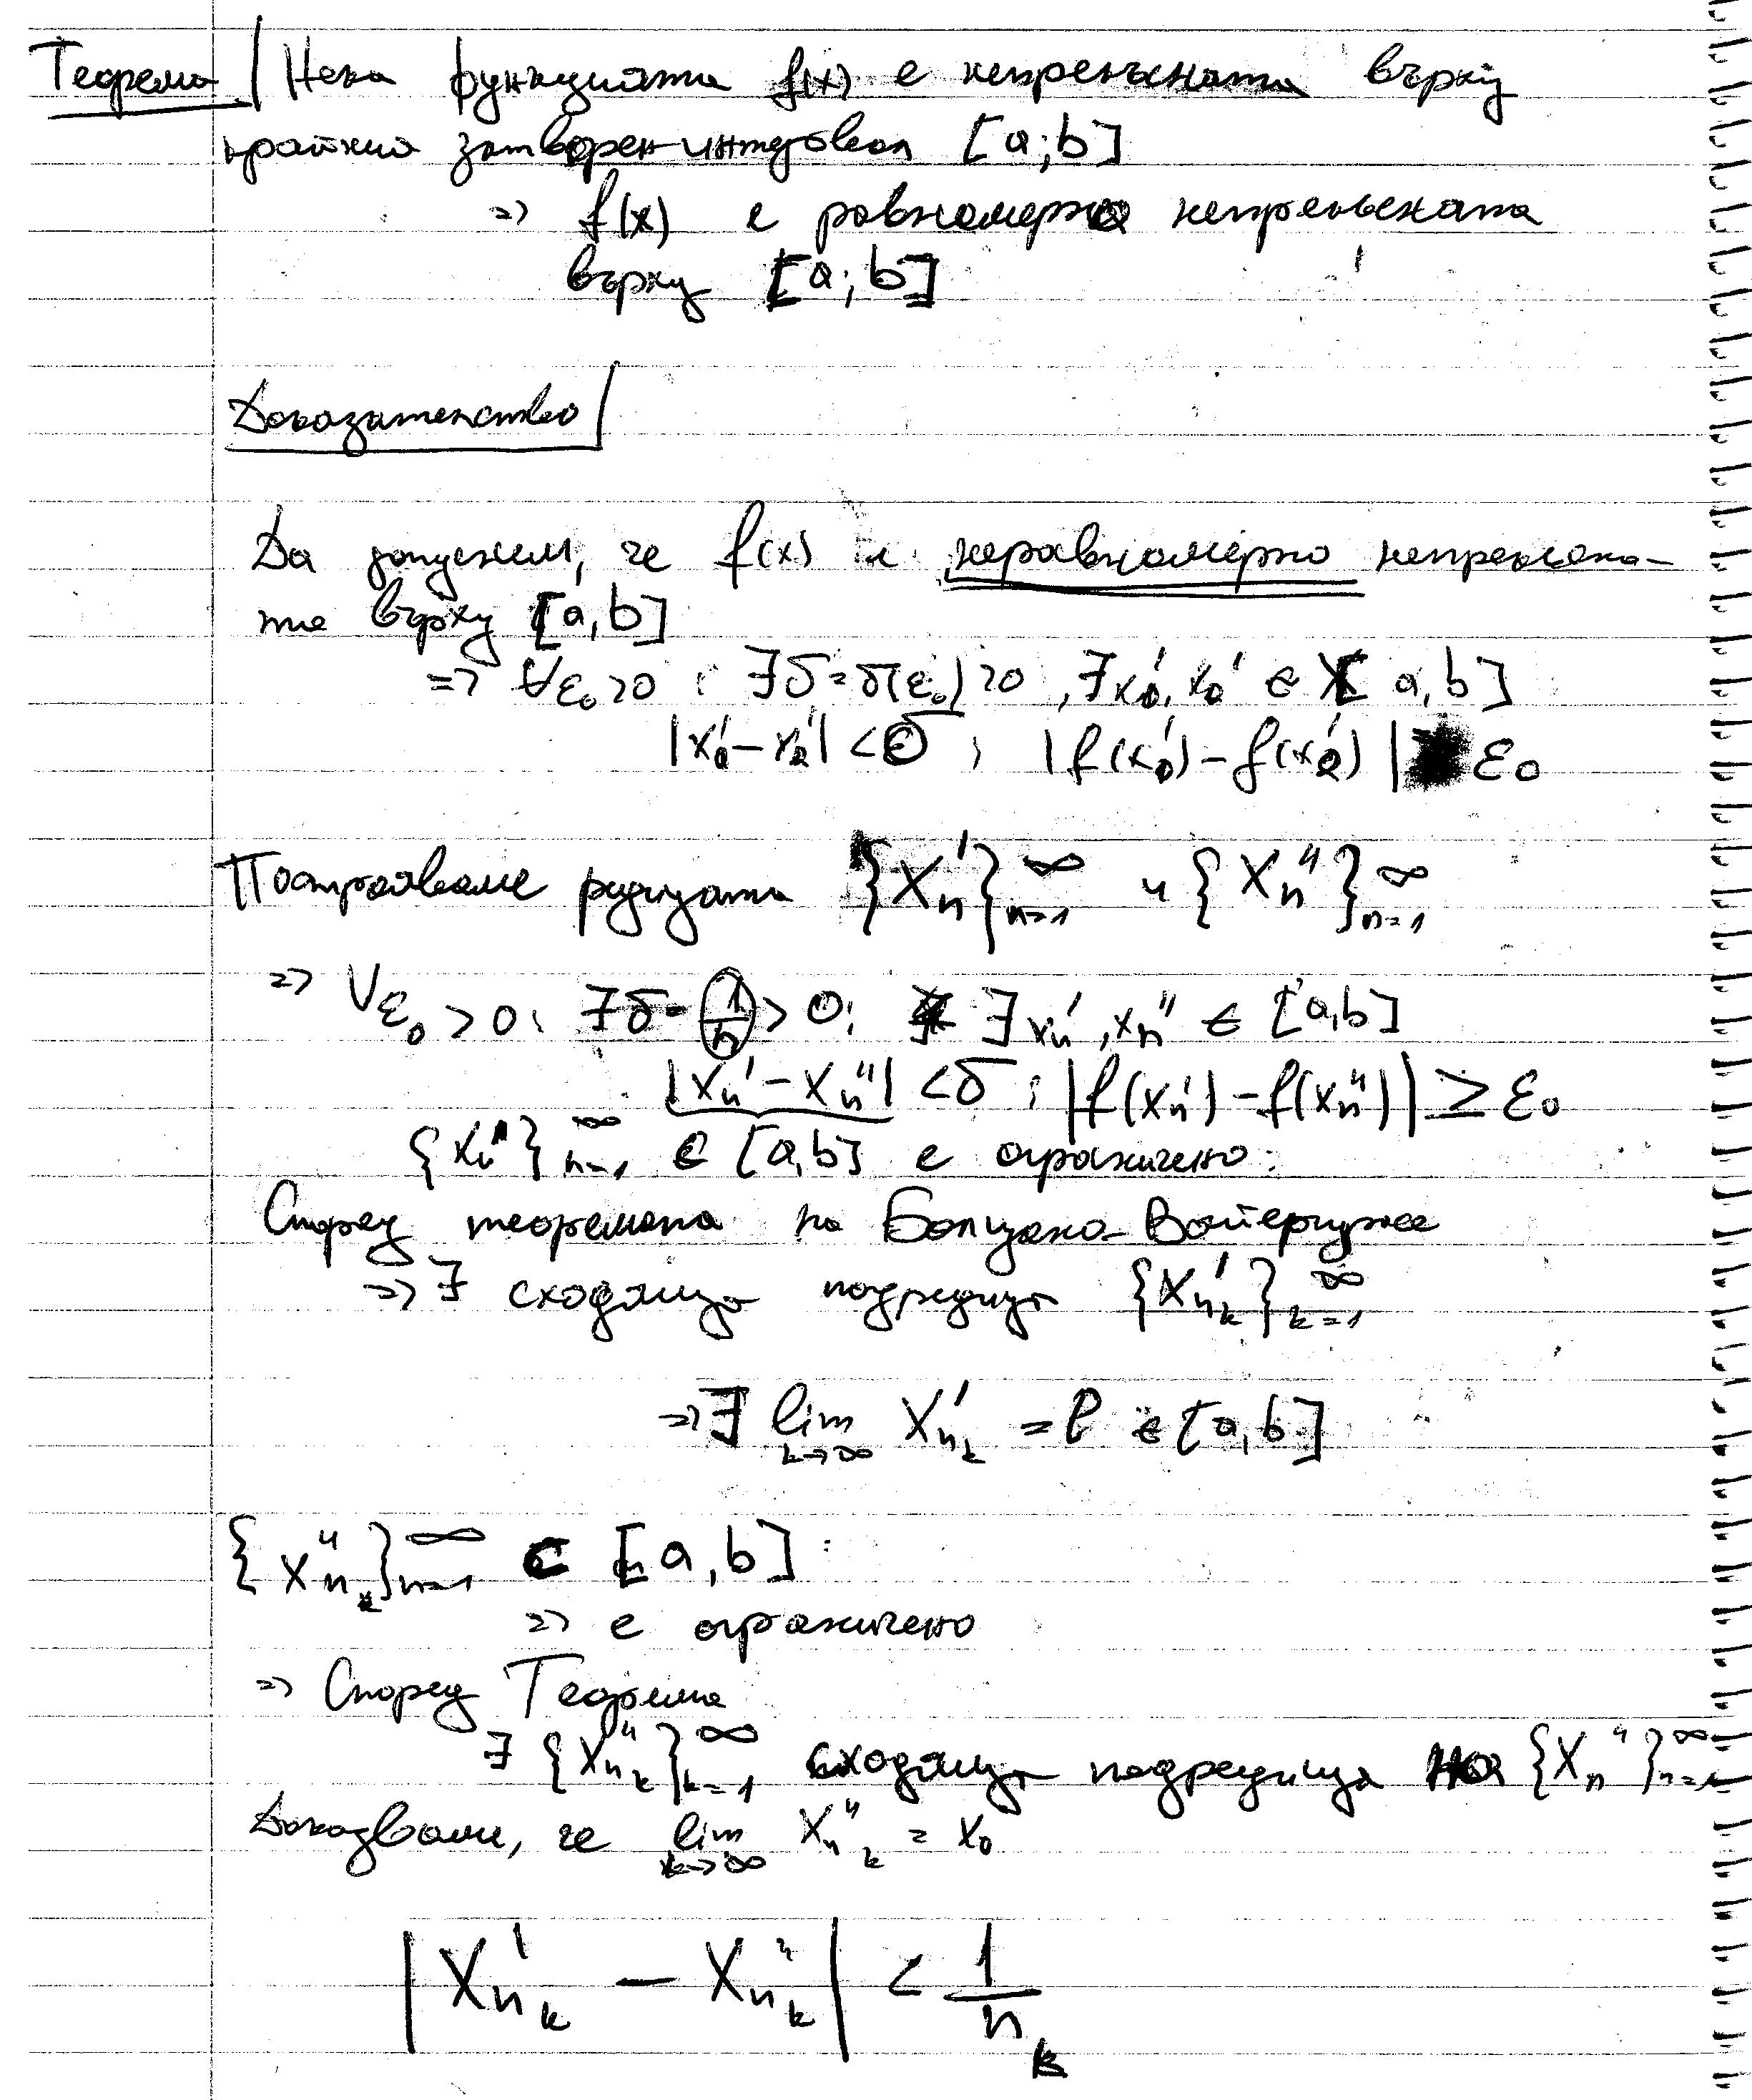 Теорема | Нека функцията f(x) е непрекъсната върху
крайния затворен интервал [a;b]
=> f(x) е равномерно непрекъсната
върху [a;b]
Доказателство
Да допуснем, че f(x) е неравномерно непрекъсна-
та върху [a,b]
=> ∀ε₀>0 : ∃δ=δ(ε₀)>0, ∃x₀', x₀' ∈ [a,b]
|x₀'-x₂'| < δ ; |f(x₀')-f(x₂')| ε₀
Построяваме редицата {xₙ'}ₙ₌₁^∞ и {xₙ''}ₙ₌₁^∞
=> ∀ε₀>0: ∃δ=1/n>0: ∃xₙ', xₙ'' ∈ [a,b]
|xₙ'-xₙ''| < δ : |f(xₙ')-f(xₙ'')| ≥ ε₀
{xₙ'}ₙ₌₁^∞ ∈ [a,b] е ограничено:
Според теоремата на Болцано-Вайерщрас
=> ∃ сходяща подредица {x'ₙₖ}ₖ₌₁^∞
=> ∃ lim k->∞ x'ₙₖ = l ∈ [a,b]
{x''ₙₖ}ₙ₌₁^∞ ⊂ [a,b]:
=> е ограничено
=> Според Теорема
∃ {x''ₙₖ}ₖ₌₁^∞ сходяща подредица на {xₙ''}ₙ₌₁^∞
Доказваме, че lim k->∞ x''ₙₖ = x₀
|x'ₙₖ - x''ₙₖ| < 1/nₖ